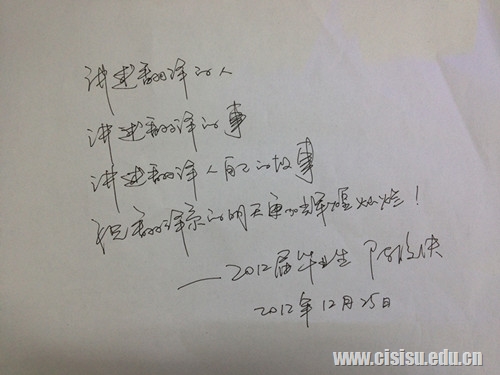 讲述翻译的人
讲述翻译的事
讲述翻译人自己的故事
祝翻译系的明天更加辉煌灿烂！
——2012届毕业生
2012年12月25日
www.cisisu.edu.cn